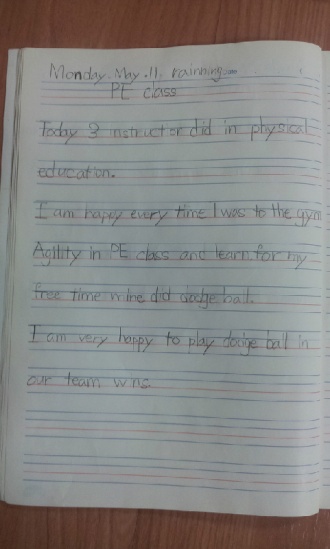 Monday. May. 11. rainning
PE class
Today 3 instructor did in physical
education.
I am happy every time I was to the gym
Agility in PE class and learn for my
free time mine did dodge ball.
I am very happy to play dodge ball in
our team wins.